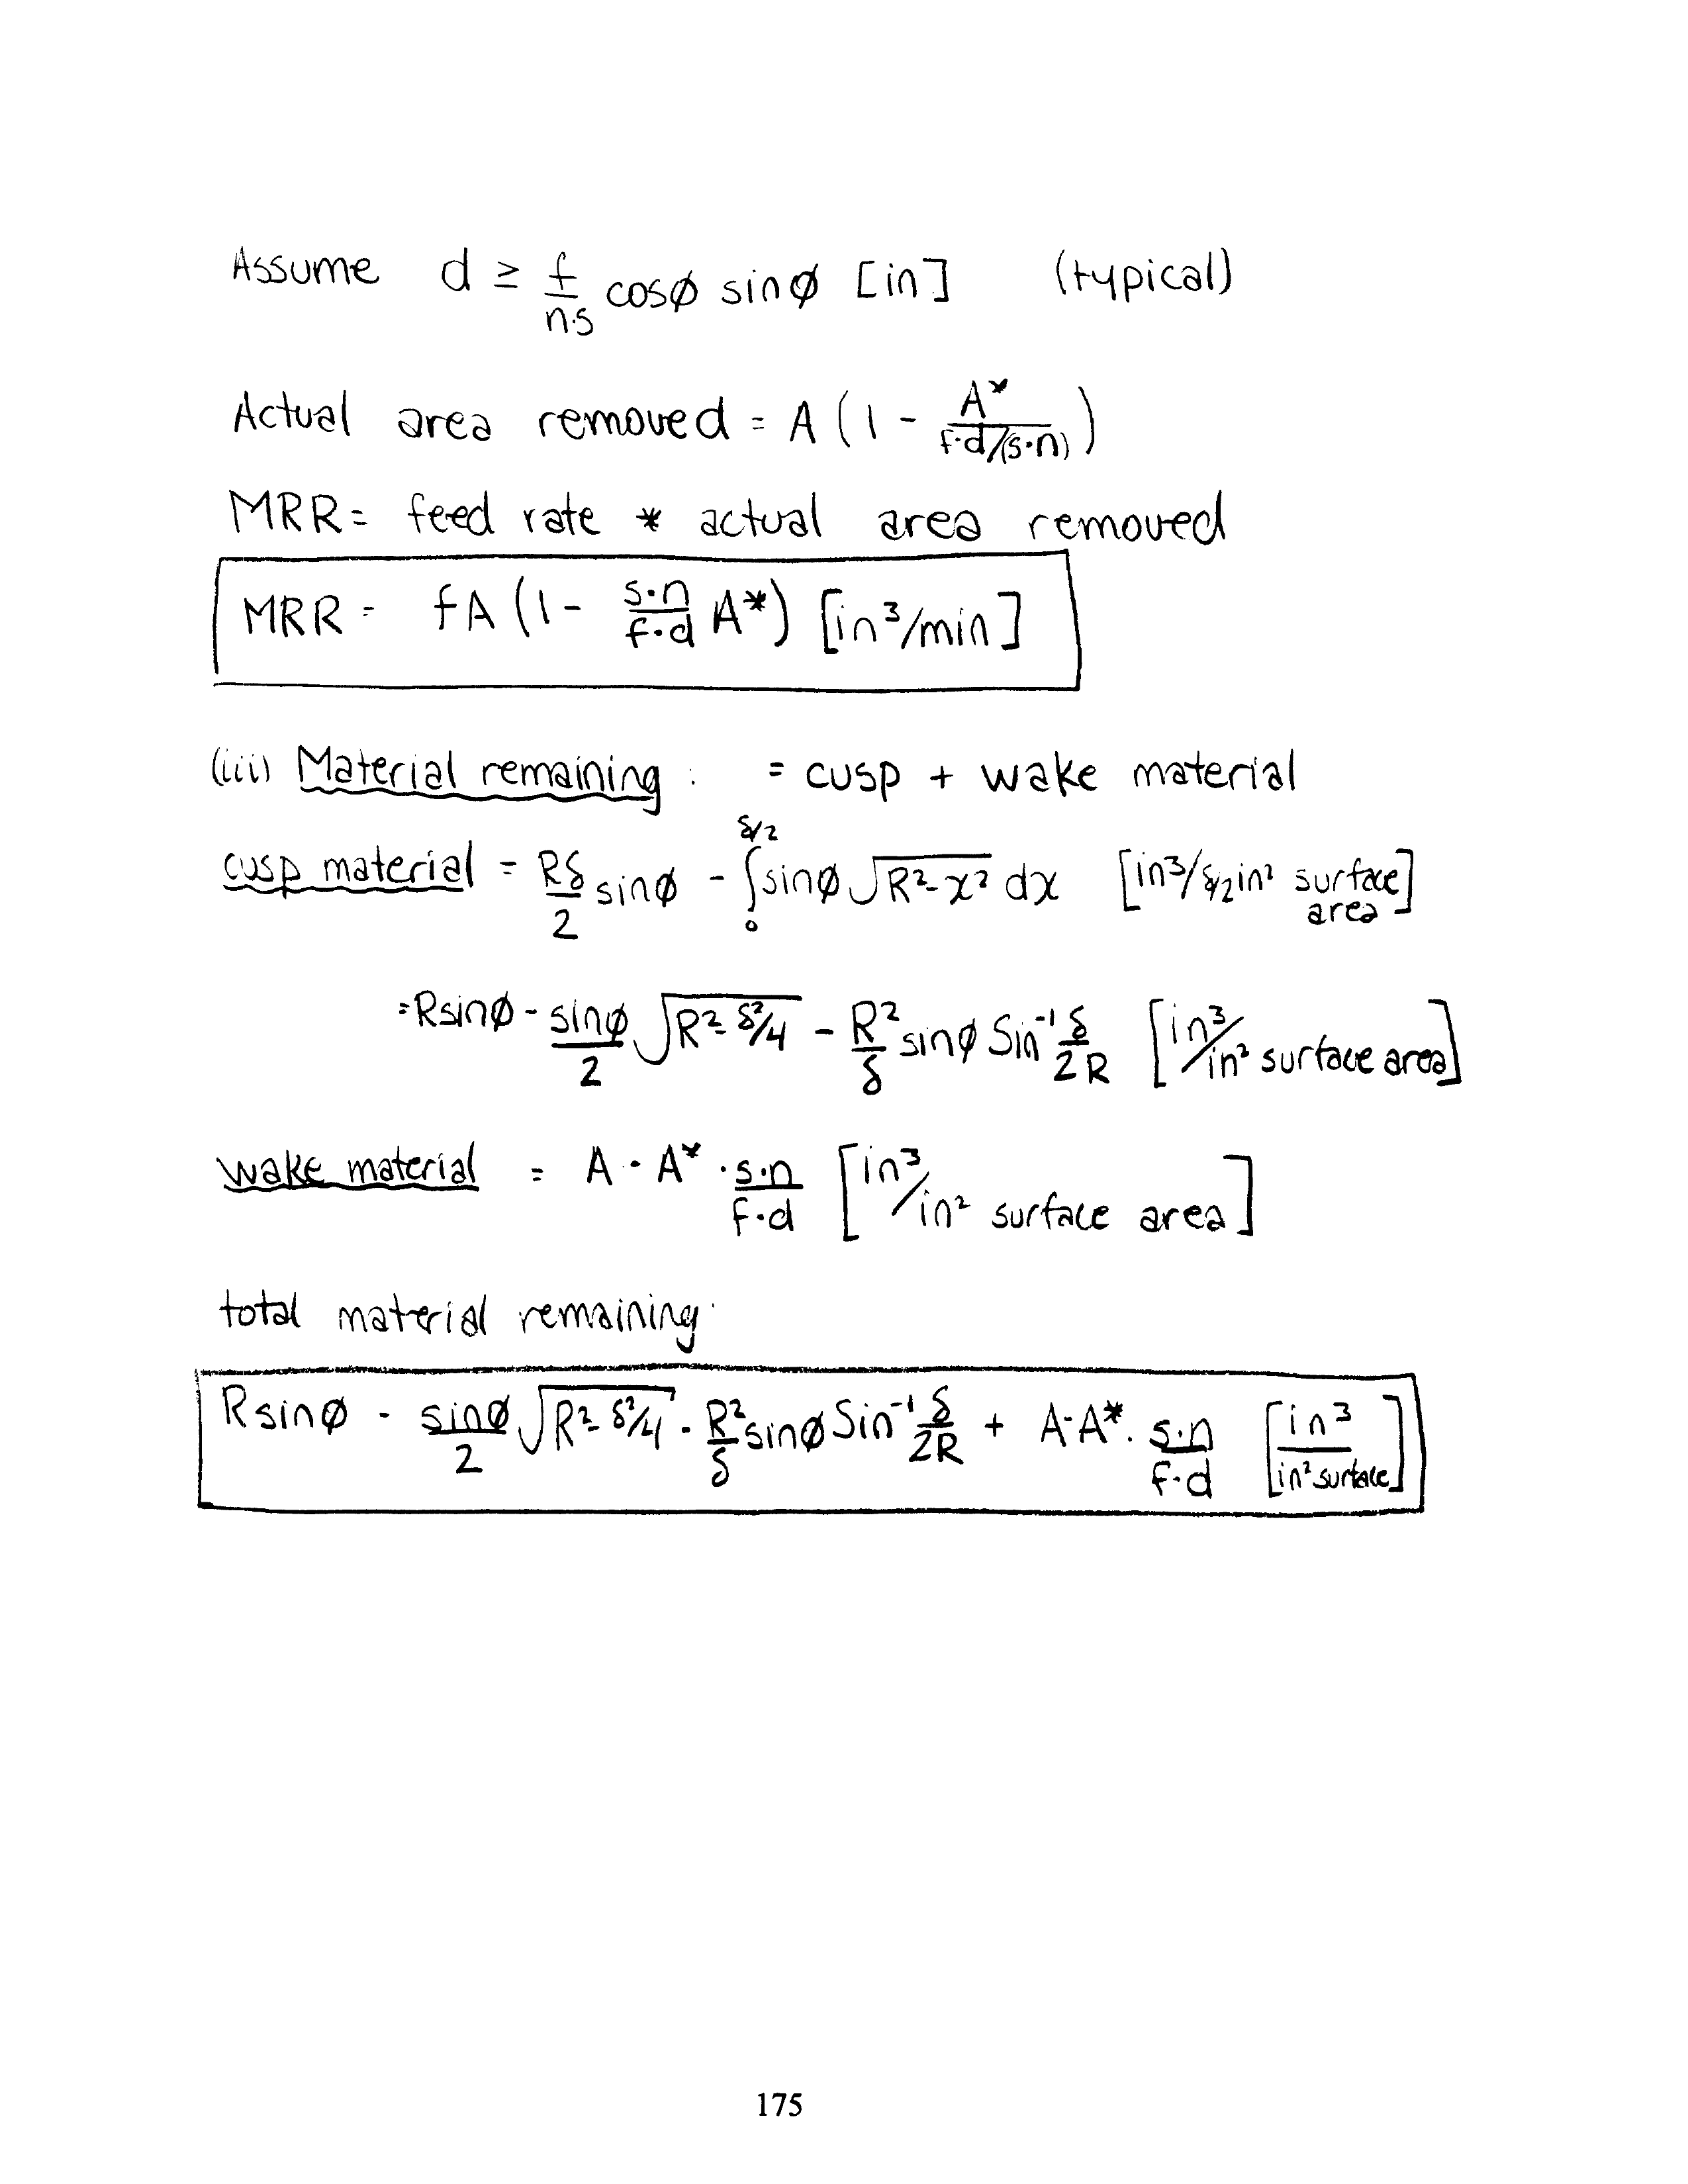 Assume d ≥ f/n·s cosø sinø [in] (typical)
Actual area removed = A (1 - A*/f·d/(s·n))
MRR = feed rate * actual area removed
MRR = fA (1 - s·n/f·d A*) [in³/min]
(iii) Material remaining : = cusp + wake material
cusp material = Rδ/2 sinø - ∫₀^δ/2 sinø √(R²-x²) dx [in³/δ/2 in² surface area]
= Rsinø - sinø/2 √(R²-δ²/4) - R²/δ sinø Sin⁻¹ δ/2R [in³/in² surface area]
wake material = A · A* · s·n/f·d [in³/in² surface area]
total material remaining:
Rsinø - sinø/2 √(R²-δ²/4) - R²/δ sinø Sin⁻¹ δ/2R + A·A* · s·n/f·d [in³/in² surface]
175